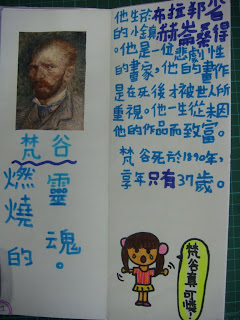 梵谷
燃燒的
靈魂。
他生於布拉邦省
的小鎮赫崙桑得
。他是一位悲劇性
的畫家,他的畫作
是在死後才被世人所
重視。他一生從因
他的作品而致富。
梵谷死於1890年,
享年只有37歲。
梵谷真可憐!